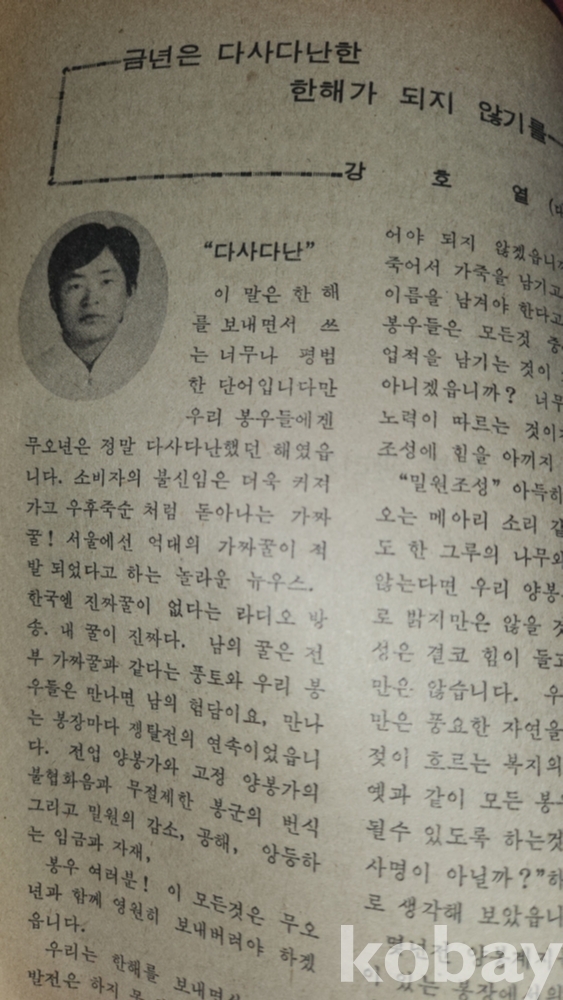 금년은 다사다난한
한해가 되지 않기를
강 호 열
“다사다난”
이 말은 한 해
를 보내면서 쓰
는 너무나 평범
한 단어입니다만
우리 봉우들에겐
무오년은 정말 다사다난했던 해였읍
니다. 소비자의 불신임은 더욱 커져
가고 우후죽순 처럼 돋아나는 가짜
꿀! 서울에선 억대의 가짜꿀이 적
발 되었다고 하는 놀라운 뉴우스.
한국엔 진짜꿀이 없다는 라디오 방
송. 내 꿀이 진짜다. 남의 꿀은 전
부 가짜꿀과 같다는 풍토와 우리 봉
우들은 만나면 남의 험담이요, 만나
는 봉장마다 쟁탈전의 연속이었읍니
다. 전업 양봉가와 고정 양봉가의
불협화음과 무절제한 봉군의 번식
그리고 밀원의 감소, 공해, 앙등하
는 임금과 자재,
봉우 여러분! 이 모든것은 무오
년과 함께 영원히 보내버려야 하겠
읍니다.
우리는 한해를 보내면서
발전은 하지 못
어야 되지 않겠읍니까
죽어서 가죽을 남기고
이름을 남겨야 한다고
봉우들은 모든것
업적을 남기는 것이
아니겠읍니까? 너무
노력이 따르는 것이
조성에 힘을 아끼지
“밀원조성” 아득히
오는 메아리 소리
도 한 그루의 나무와
않는다면 우리 양봉
로 밝지만은 않을 것
성은 결코 힘이 들고
만은 않습니다. 우
만은 풍요한 자연을
젖이 흐르는 복지의
옛과 같이 모든 봉우
될수 있도록 하는것
사명이 아닐까?”하
로 생각해 보았읍니
있는 봉장에서의
kobay